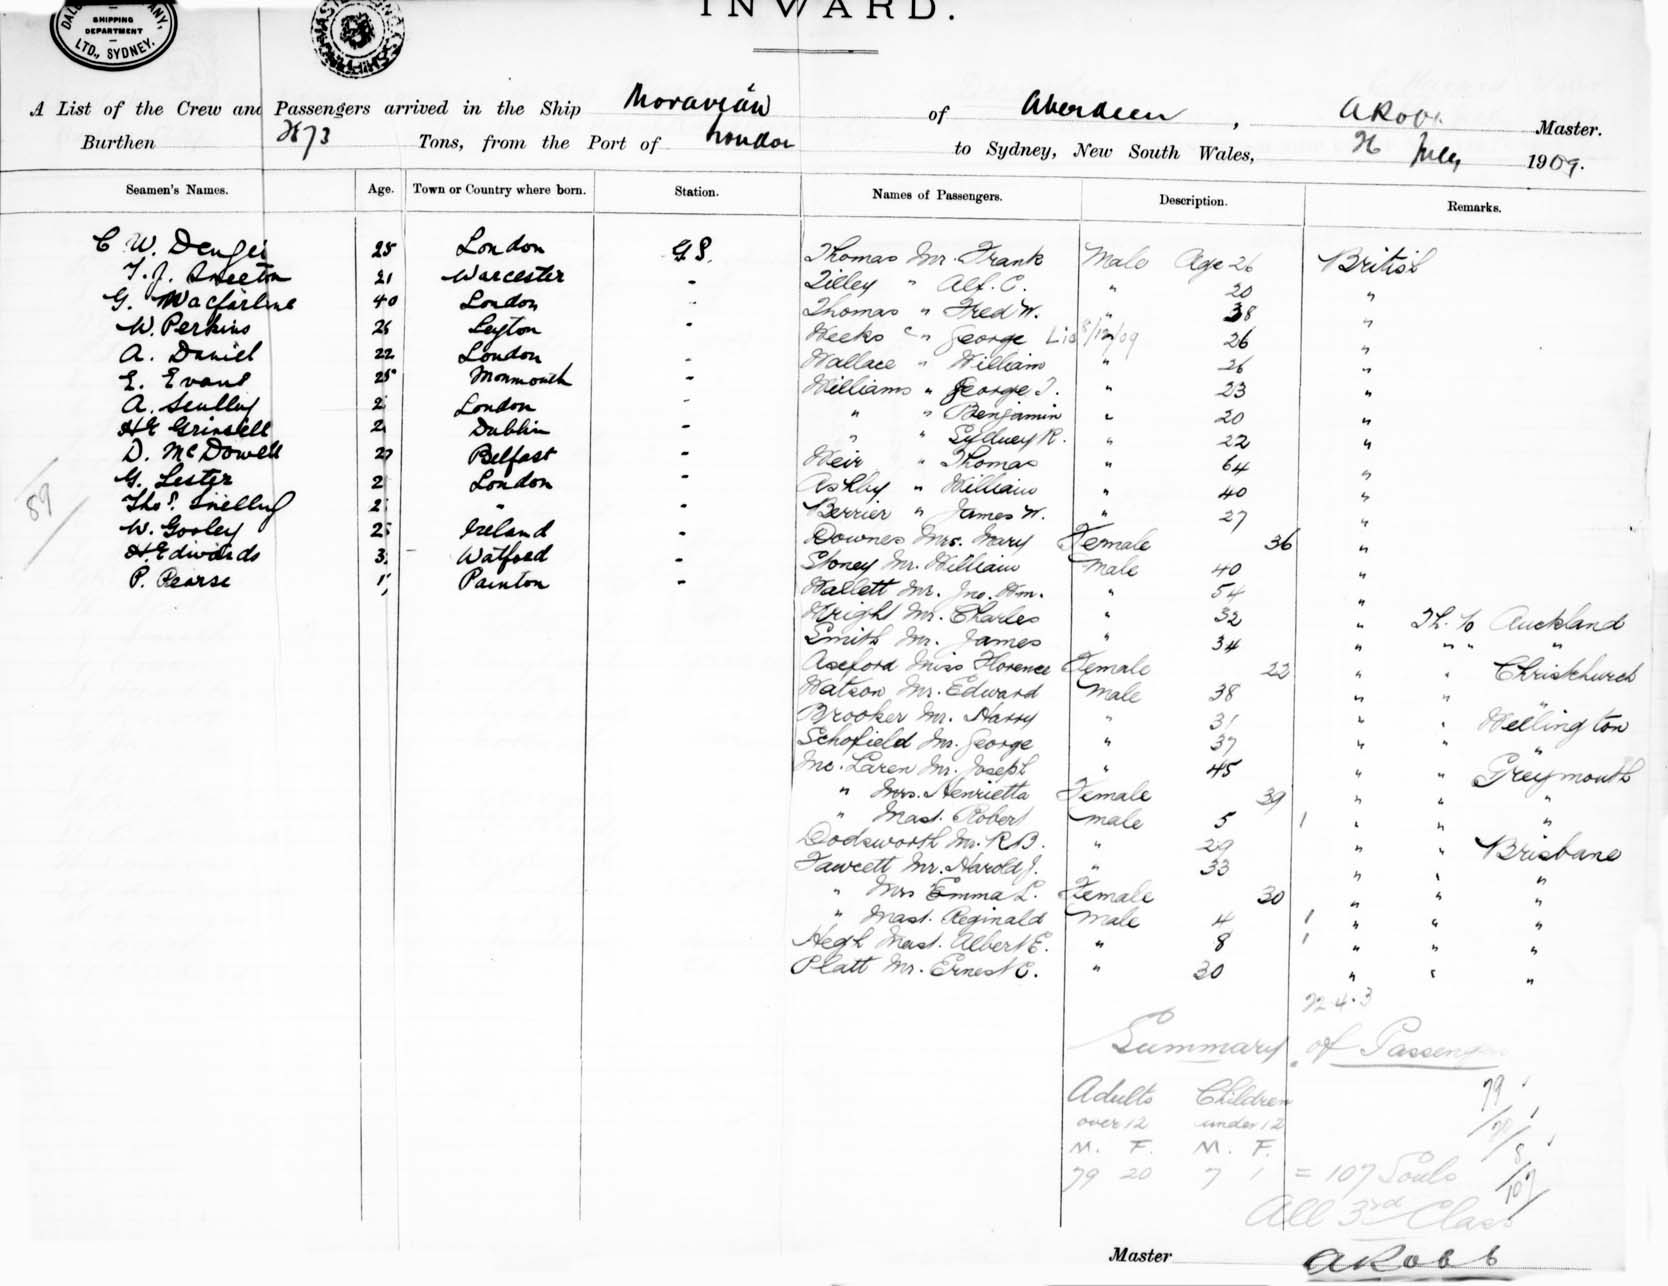 DALG COMPANY,
SHIPPING
DEPARTMENT
LTD., SYDNEY.
INWARD.
A List of the Crew and Passengers arrived in the Ship Moravian of Aberdeen, A Robb Master.
Burthen 2673 Tons, from the Port of London to Sydney, New South Wales, 26 July 1909.
Seamen's Names. Age. Town or Country where born. Station. Names of Passengers. Description. Remarks.
C W. 25 London G.S. Thomas Mr. Frank Male Age 26 British
T. J. 21 Warcester - Tilley " Alf. C. " 20 "
G. Macfarlane 40 London - Thomas " Fred W. " 38 "
W. Perkins 26 Leyton - Weeks " George Lid 8/12/09 26 "
A. Daniel 22 London - Wallace " William " 26 "
E. Evans 25 Monmouth - Williams " George T. " 23 "
A. Scully 2 London - " " Benjamin " 20 "
HE Grinsell 2 Dublin - " " Sydney R. " 22 "
D. McDowell 27 Belfast - Weir " Thomas " 64 "
G. Lester 2 London - Ashby " William " 40 "
Thos. Snelling 2 " - Berrier " James W. " 27 "
W. Gooley 25 Ireland - Downes Mrs. Mary Female 36 "
H. Edwards 3 Watford - Stoney Mr. William Male 40 "
P. Pearse 1 Painton - Wallett Mr. Jno. Wm. " 54 "
89
Wright Mr. Charles " 32 " Th. to Auckland
Smith Mr. James " 34 " " " "
Axford Miss Florence Female 22 " " Christchurch
Watson Mr. Edward Male 38 " " "
Brooker Mr. Harry " 31 " " Wellington
Schofield Mr. George " 37 " " "
Mc. Laren Mr. Joseph " 45 " " Greymouth
" Mrs. Henrietta Female 39 " " "
" Mast. Robert Male 5 1 " " "
Dodsworth Mr. R B. " 29 " " Brisbane
Fawcett Mr. Harold J. " 33 " " "
" Mrs Emma L. Female 30 " " "
" Mast. Reginald Male 4 1 " " "
Hegh Mast. Albert E. " 8 1 " " "
Platt Mr. Ernest C. " 30 " " "
22.4.3
Summary of Passengers
Adults Children 79
over 12 under 12 20
M. F. M. F. 8
79 20 7 1 = 107 Souls 107
All 3rd Class
Master A Robb